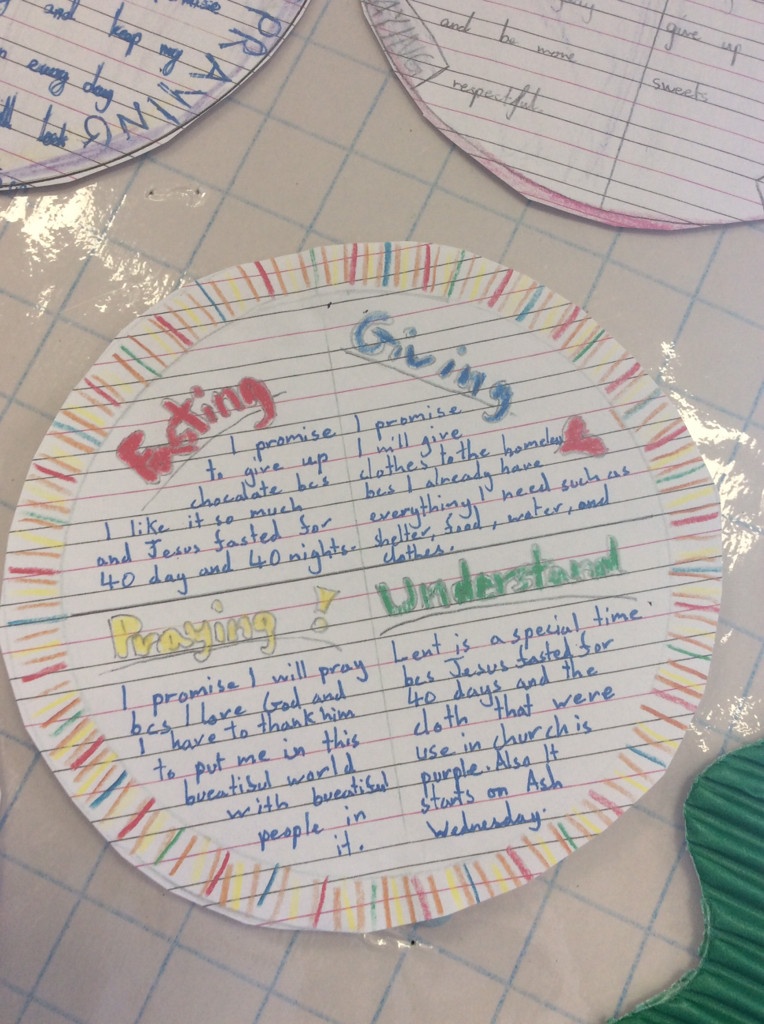 and keep my
every day
PRAYING
and be more
respectful.
give up
sweets
Fasting
I promise
to give up
chocalate bcs
I like it so much
and Jesus fasted for
40 day and 40 nights.
Giving
I promise
I will give
clothes to the homeless
bcs I already have
everything I need such as
shelter, food, water, and
clothes.
Praying!
I promise I will pray
bcs I love God and
I have to thank him
to put me in this
bueatiful world
with bueatiful
people in
it.
Understand
Lent is a special time
bcs Jesus fasted for
40 days and the
cloth that were
use in church is
purple. Also It
starts on Ash
Wednesday.